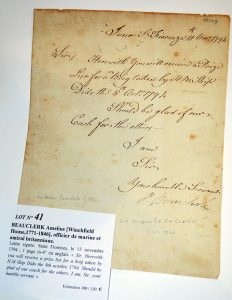 Sir, Herewith You will receive a Prize
List for a Brig taken by H M Ship
Dido the 8 Octr 1794
Should be glad of our
Cash for the others
I am
Sir
Your humble Servant
LOT N° 41
BEAUCLERK Amelius [Winchfield
House, 1771-1846], officier de marine et
amiral britannique.
Lettre signée. Saint Fiorenzo, le 15 novembre
1794 ; 1 page in-4° en anglais. « Sir, Herewith
you will receive a prize list for a brig taken by
H.M Ship Dido the 8th october 1794. Should be
glad of our coach for the others. I am Sir. Your
humble servant. »
Estimation 100 / 120 €